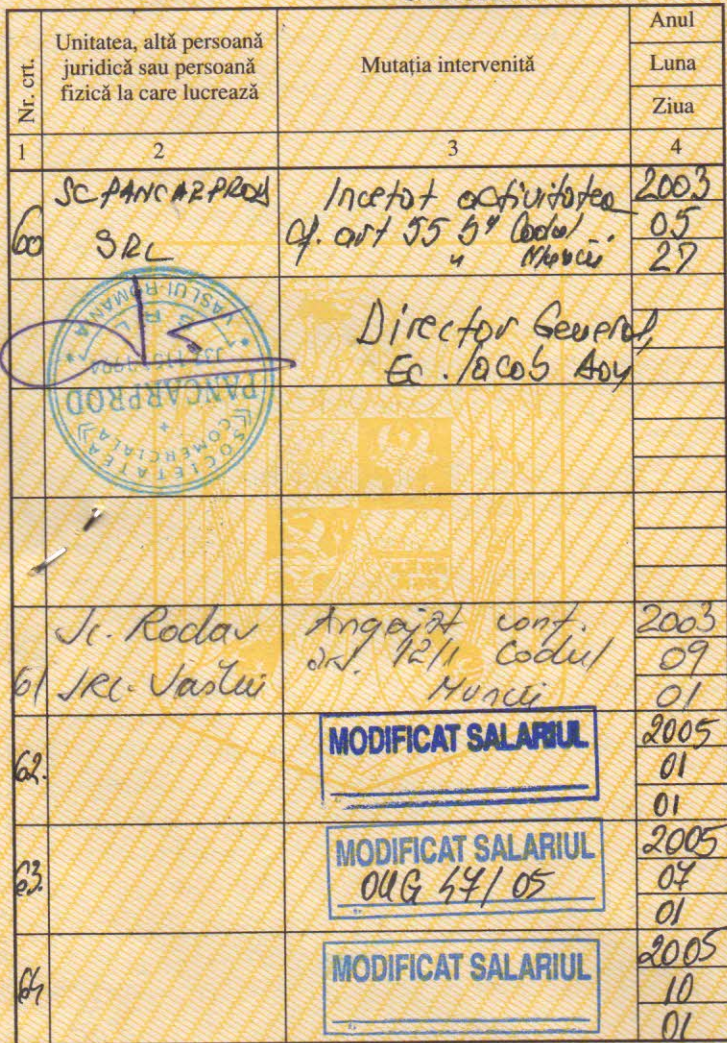 Nr. crt.
Unitatea, altă persoană
juridică sau persoană
fizică la care lucrează
Mutația intervenită
Anul
Luna
Ziua
1 2 3 4
60
SC PANCARPROD
SRL
Incetat activitatea
cf. art 55 b" Codul
" Muncii
2003
05
27
SOCIETATEA
COMERCIALA
PANCARPROD
S R L
VASLUI-ROMANIA
Director General,
Ec. Iacob
61
Sc. Rodav
SRL. Vaslui
Angajat conf.
art. 12/1 Codul
Muncii
2003
09
01
62.
MODIFICAT SALARIUL
2005
01
01
63.
MODIFICAT SALARIUL
OUG 47/05
2005
07
01
64
MODIFICAT SALARIUL
2005
10
01